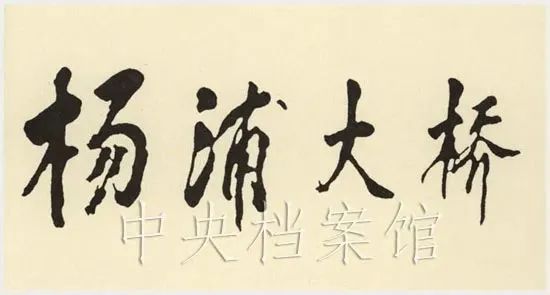 杨浦大桥
中央档案馆